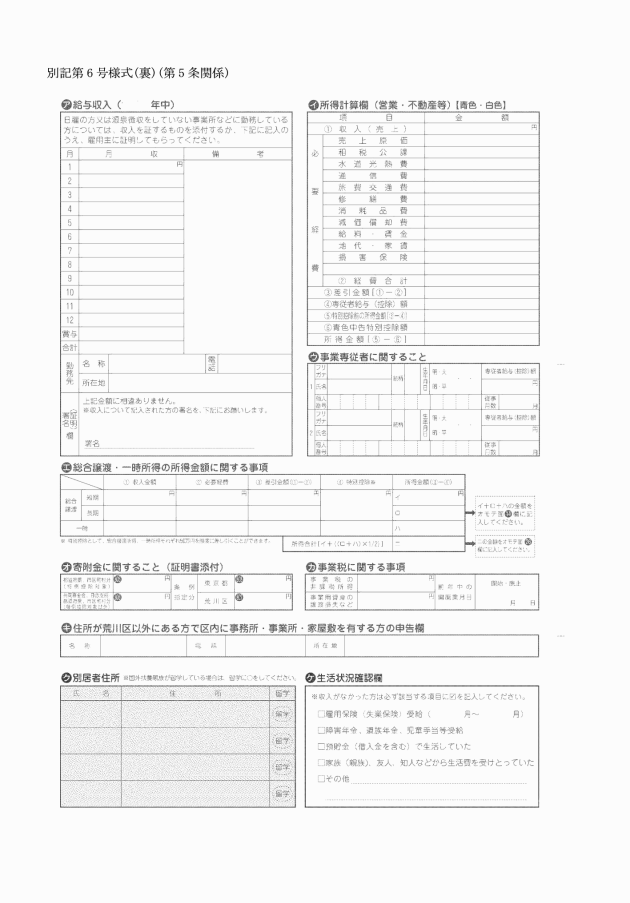 別記第6号様式(裏)(第5条関係)
ア給与収入（　　年中）
日雇の方又は源泉徴収をしていない事業所などに勤務している
方については、収入を証するものを添付するか、下記に記入の
うえ、雇用主に証明してもらってください。
月　月収　備考
1　円
2
3
4
5
6
7
8
9
10
11
12
賞与
合計
勤務先　名称　電話
所在地
上記金額に相違ありません。
※収入について記入された方の署名を、下記にお願いします。
署名
イ所得計算欄（営業・不動産等）【青色・白色】
項目　金額
①収入（売上）　円
必要経費
売上原価
租税公課
水道光熱費
通信費
旅費交通費
修繕費
消耗品費
減価償却費
給料・賃金
地代・家賃
損害保険
②経費合計
③差引金額[①－②]
④専従者給与（控除）額
⑥青色申告特別控除額
所得金額[⑤－⑥]
ウ事業専従者に関すること
1　フリガナ　氏名　続柄　生年月日　専従者給与(控除)額　円
個人番号　従事月数　月
2　フリガナ　氏名　続柄　生年月日　専従者給与(控除)額　円
個人番号　従事月数　月
エ総合譲渡・一時所得の所得金額に関する事項
①収入金額　②必要経費　③差引金額(①－②)　④特別控除額　所得金額(③－④)
総合譲渡　短期　円　円　円　円　イ　円
長期　ロ
一時　ハ
所得合計[イ＋{(ロ＋ハ)×1/2}]　ニ
イ＋ロ＋ハの金額を
オ寄附金に関すること（証明書添付）
条例指定分　東京都　円
荒川区　円
カ事業税に関する事項
事業税の非課税所得　円
事業用資産の譲渡損失など　円
前年中の開廃業月日　開始・廃止
月　日
キ住所が荒川区以外にある方で区内に事務所・事業所・家屋敷を有する方の申告欄
名称　電話　所在地
ク別居者住所 ※国外扶養親族が留学している場合は、留学に○をしてください。
氏名　住所　留学
留学
留学
留学
留学
ケ生活状況確認欄
※収入がなかった方は必ず該当する項目に☑を記入してください。
□雇用保険（失業保険）受給（　　月～　　月）
□障害年金、遺族年金、児童手当等受給
□預貯金（借入金を含む）で生活していた
□家族（親族）、友人、知人などから生活費を受けとっていた
□その他